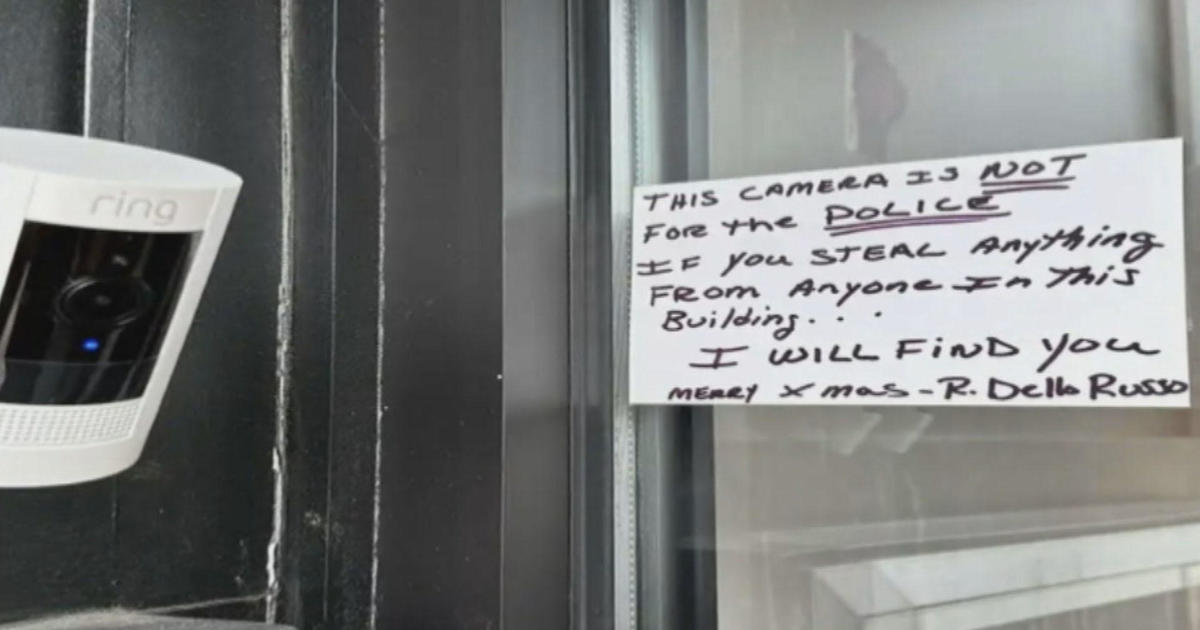 ring
THIS CAMERA IS NOT
FOR the POLICE
IF you STEAL Anything
FROM Anyone In This
Building...
I WILL FIND you
MERRY Xmas - R. Della Russo